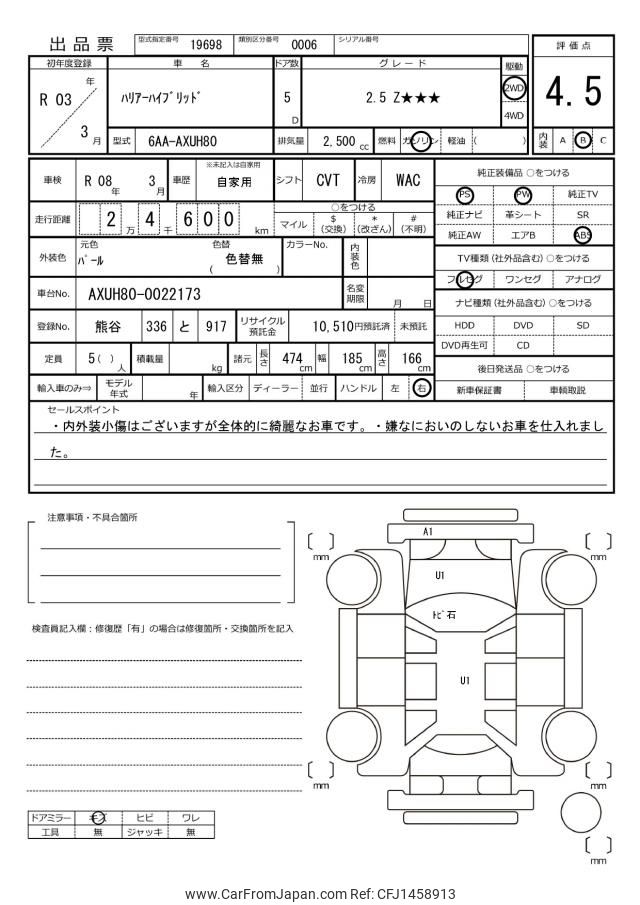 出品票 型式指定番号 19698 類別区分番号 0006 シリアル番号
評価点
4.5
内装 A B C
初年度登録 車名 ドア数 グレード 駆動
R 03 年 ﾊﾘｱｰﾊｲﾌﾞﾘｯﾄﾞ 5 D 2.5 Z★★★ 2WD
4WD
3 月 型式 6AA-AXUH80 排気量 2,500 cc 燃料 ガソリン 軽油 ( )
※未記入は自家用
車検 R 08 年 3 月 車歴 自家用 シフト CVT 冷房 WAC
走行距離 2 万 4 千 6 0 0 km
○をつける
マイル $(交換) *(改ざん) #(不明)
外装色 元色 ﾊﾟｰﾙ 色替 ( 色替無 ) カラーNo. 内装色
車台No. AXUH80-0022173 名変期限 月 日
登録No. 熊谷 336 と 917 リサイクル預託金 10,510円預託済 未預託
定員 5( ) 人 積載量 kg 諸元 長さ 474 cm 幅 185 cm 高さ 166 cm
輸入車のみ⇒ モデル年式 年 輸入区分 ディーラー 並行 ハンドル 左 右
純正装備品 ○をつける
PS PW 純正TV
純正ナビ 革シート SR
純正AW エアB ABS
TV種類(社外品含む) ○をつける
フルセグ ワンセグ アナログ
ナビ種類(社外品含む) ○をつける
HDD DVD SD
DVD再生可 CD
後日発送品 ○をつける
新車保証書 車輌取説
セールスポイント
・内外装小傷はございますが全体的に綺麗なお車です。・嫌なにおいのしないお車を仕入れまし
た。
注意事項・不具合箇所
検査員記入欄：修復歴「有」の場合は修復箇所・交換箇所を記入
A1
U1
ﾄﾋﾞ石
U1
[ ] mm
[ ] mm
[ ] mm
[ ] mm
[ ] mm
ドアミラー キズ ヒビ ワレ
工具 無 ジャッキ 無
www.CarFromJapan.com Ref: CFJ1458913